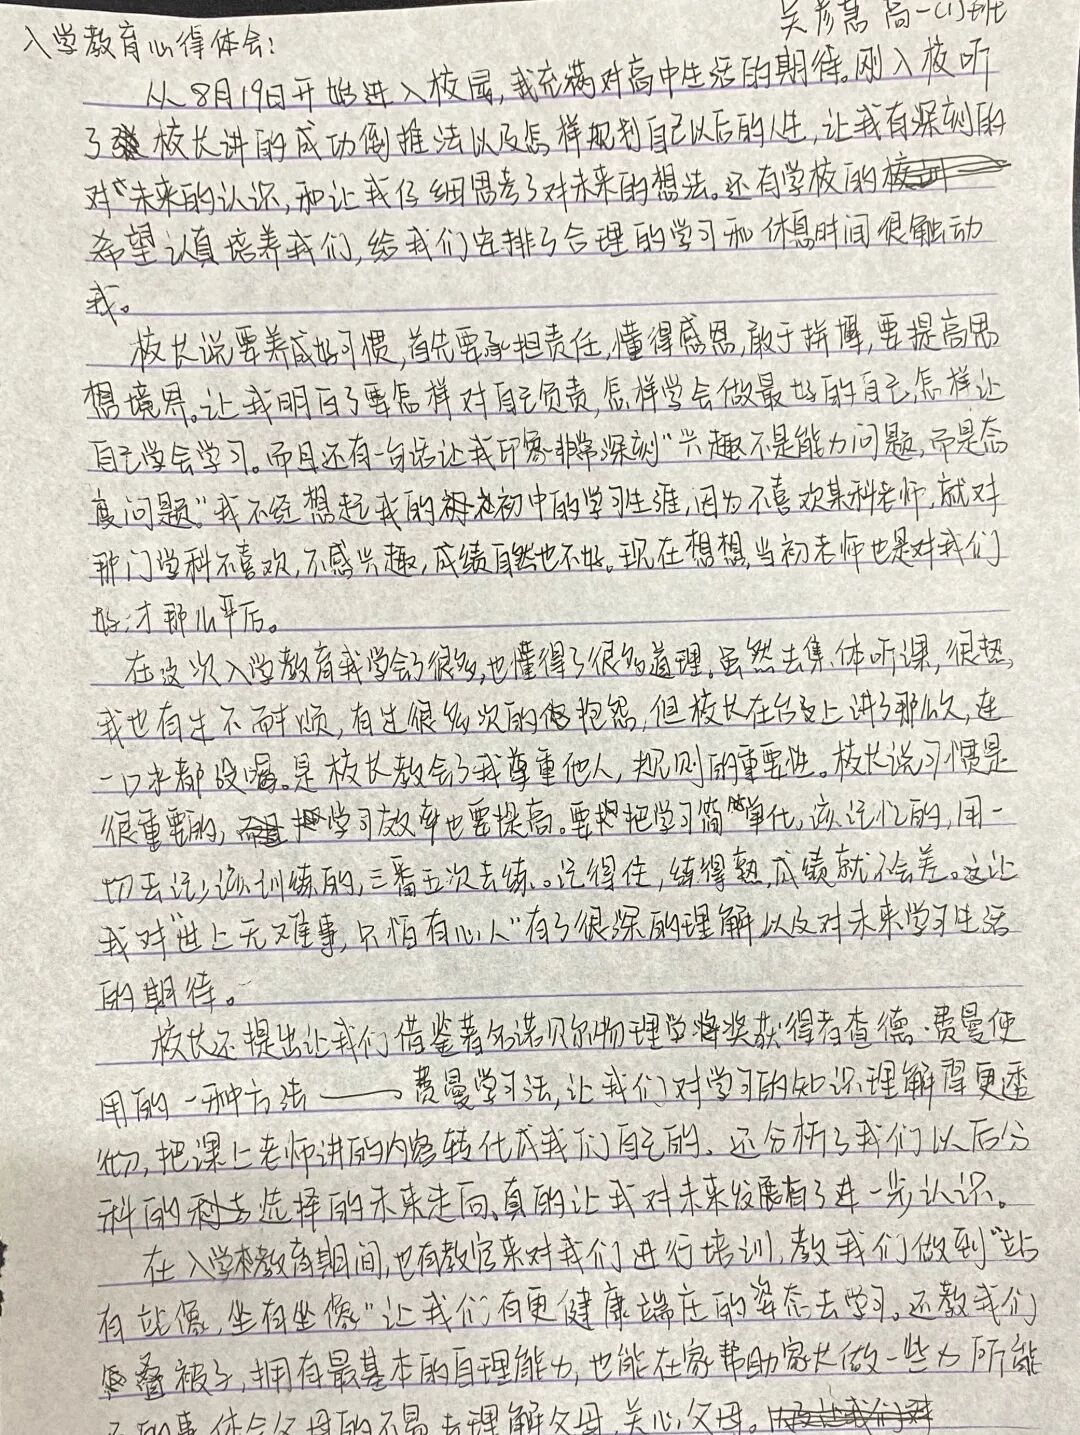 吴彦慧 高一(1)班
入学教育心得体会:
从8月19日开始进入校园,我充满对高中生活的期待。刚入校听
了校长讲的成功倒推法以及怎样规划自己以后的人生,让我有深刻的
对“未来的认识,和让我仔细思考了对未来的想法。还有学校的
希望认真培养我们,给我们安排了合理的学习和休息时间很触动
我。
校长说要养成好习惯,首先要承担责任,懂得感恩,敢于拼搏,要提高思
想境界。让我明白了要怎样对自己负责,怎样学会做最好的自己,怎样让
自己学会学习。而且还有一句话让我印象非常深刻“兴趣不是能力问题,而是态
度问题。”我不经想起我的初中的学习生涯,因为不喜欢某科老师,就对
那门学科不喜欢,不感兴趣,成绩自然也不好。现在想想,当初老师也是对我们
好才那么严厉。
在这次入学教育我学会了很多,也懂得了很多道理。虽然去集体听课,很热,
我也有生不耐烦,有生很多次的抱怨,但校长在台上讲了那么久,连
一口水都没喝。是校长教会了我尊重他人,规则的重要性。校长说习惯是
很重要的,学习效率也要提高。要把学习简单化,该记忆的,用一
切去记,该训练的,三番五次去练。记得住,练得熟,成绩就不会差。这让
我对“世上无难事,只怕有心人”有了很深的理解以及对未来学习生活
的期待。
校长还提出让我们借鉴著名诺贝尔物理学奖获得者查德·费曼使
用的一种方法——费曼学习法,让我们对学习的知识理解得更透
彻,把课上老师讲的内容转化成我们自己的。还分析了我们以后分
科的选择的未来走向,真的让我对未来发展有了进一步认识。
在入学教育期间,也有教官来对我们进行培训,教我们做到“站
有站像,坐有坐像”让我们有更健康端庄的姿态去学习。还教我们
叠被子,拥有最基本的自理能力,也能在家帮助家长做一些力所能
的事,体会父母的不易,去理解父母,关心父母。